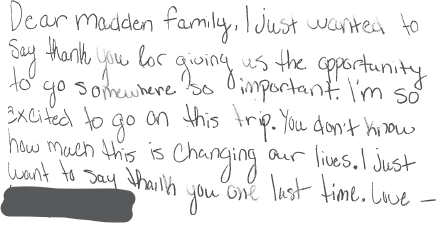 Dear madden family, I just wanted to
say thank you for giving us the opportunity
to go somewhere so important. I'm so
excited to go on this trip. You don't know
how much this is changing our lives. I just
want to say thank you one last time. Love –